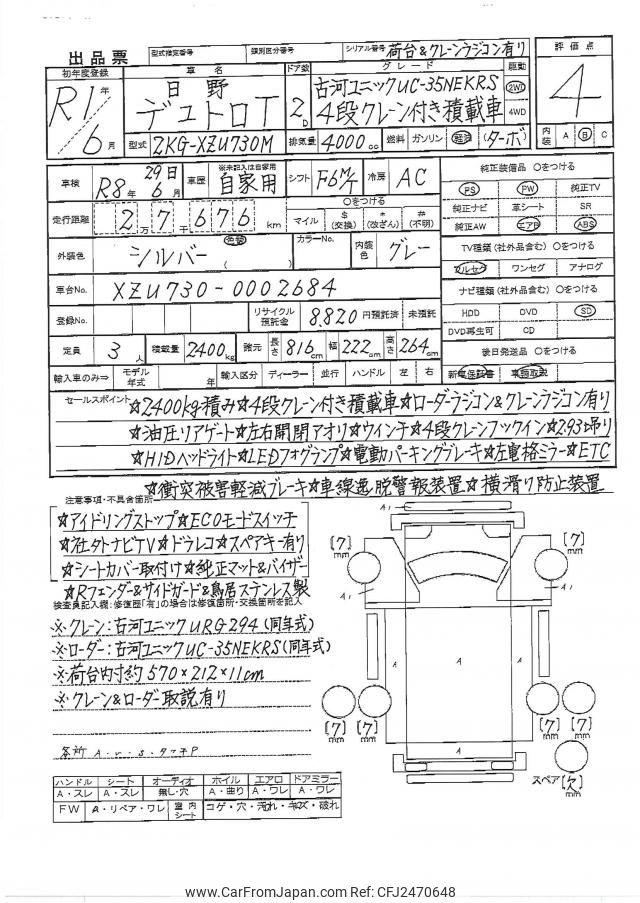 出品票 型式指定番号 類別区分番号 シリアル番号 荷台&クレーンラジコン有り 評価点
初年度登録 車名 ドア数 グレード 駆動
R1年 日野 古河ユニックUC-35NEKRS 2WD 4
6月 デュトロT 2D 4段クレーン付き積載車 4WD
型式 2KG-XZU730M 排気量 4000cc 燃料 ガソリン 軽油 (ターボ) 内装 A B C
車検 R8年 29日 6月 車歴 ※未記入は自家用 自家用 シフト F6M/T 冷房 AC 純正装備品 〇をつける
PS PW 純正TV
走行距離 2万7千676km 〇をつける マイル $(交換) *(改ざん) #(不明) 純正ナビ 革シート SR
純正AW エアB ABS
外装色 シルバー 色替 ( ) カラーNo. 内装色 グレー TV種類(社外品含む) 〇をつける
フルセグ ワンセグ アナログ
車台No. XZU730-0002684 ナビ種類(社外品含む) 〇をつける
登録No. リサイクル預託金 8,820 円預託済 未預託 HDD DVD SD
DVD再生可 CD
定員 3人 積載量 2400kg 諸元 長さ 816cm 幅 222cm 高さ 264cm 後日発送品 〇をつける
輸入車のみ⇒ モデル年式 年 輸入区分 ディーラー 並行 ハンドル 左 右 新車保証書
セールスポイント ☆2400kg積み☆4段クレーン付き積載車☆ローダーラジコン&クレーンラジコン有り
☆油圧リアゲート☆左右開閉アオリ☆ウインチ☆4段クレーンフックイン☆2.93t吊り
☆HIDヘッドライト☆LEDフォグランプ☆電動パーキングブレーキ☆左電格ミラー☆ETC
☆衝突被害軽減ブレーキ☆車線逸脱警報装置☆横滑り防止装置
注意事項・不具合箇所
☆アイドリングストップ☆ECOモードスイッチ
☆社外ナビTV☆ドラレコ☆スペアキー有り
☆シートカバー取付け☆純正マット&バイザー
☆Rフェンダー&サイドガード&鳥居ステンレス製
検査員記入欄:修復歴「有」の場合は修復箇所・交換箇所を記入
※クレーン:古河ユニックURG-294(同年式)
※ローダー:古河ユニックUC-35NEKRS(同年式)
※荷台内寸約570×212×11cm
※クレーン&ローダー取説有り
各所 A・U・S・タッチP
A1
[7]mm [7]mm
A1 A1
A A A
[7]mm [7]mm [7]mm [7]mm
A
スペア [欠]mm
ハンドル シート オーディオ ホイル エアロ ドアミラー
A・スレ A・スレ 無し・穴 A・曲り A・ワレ A・ワレ
FW A・リペア・ワレ 室内シート コゲ・穴・汚れ・キズ・破れ
www.CarFromJapan.com Ref: CFJ2470648